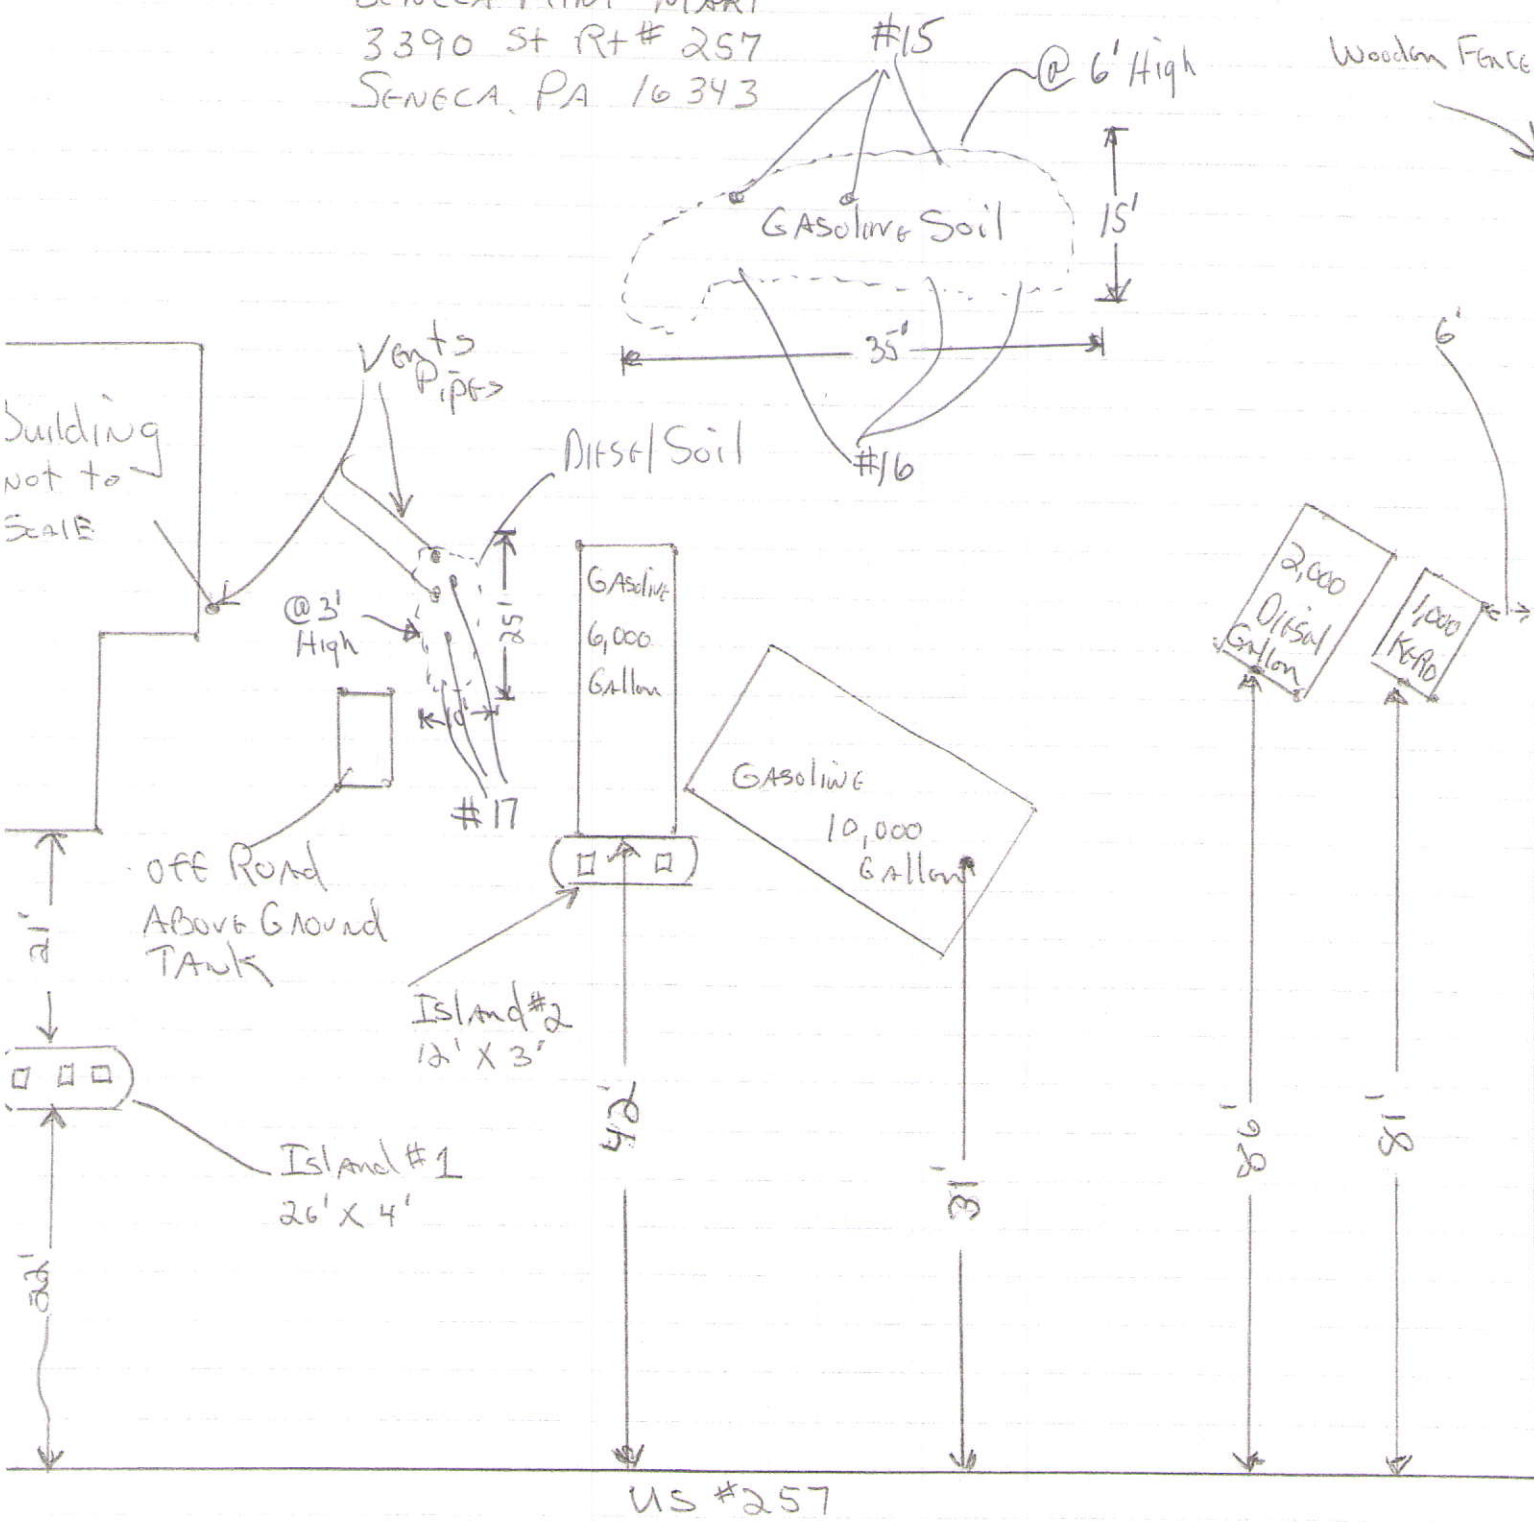 SENECA MINI MART
3390 St Rt # 257
SENECA, PA 16343
#15
@ 6' High
Wooden FENCE
GASOLINE Soil
15'
35'
#16
6'
Vents
Pipes
Building
Not to
SCALE
DIESEl Soil
@ 3'
High
25'
10'
#17
GASOLINE
6,000
GAllon
GASoliNE
10,000
GAllon
2,000
DiEsel
GAllon
1,000
KERO
OFF ROAD
ABOVE GROUND
TANK
21'
Island #2
12' X 3'
Island #1
26' X 4'
22'
42'
31'
86'
81'
US #257